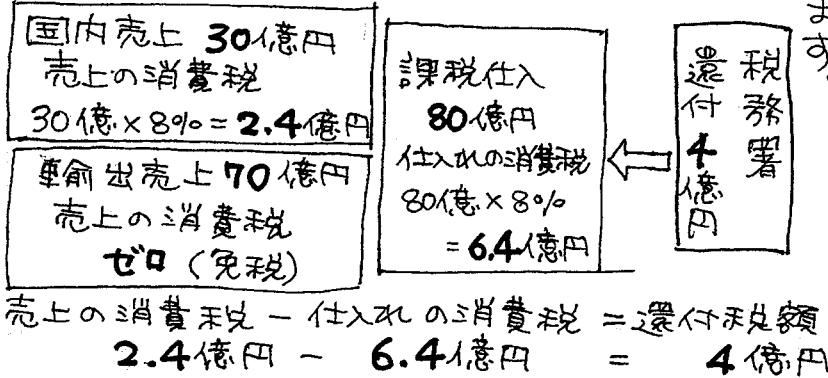 国内売上 30億円
売上の消費税
30億×8%=2.4億円
輸出売上70億円
売上の消費税
ゼロ(免税)
課税仕入
80億円
仕入れの消費税
80億×8%
=6.4億円
税務署
還付4億円
ます。
売上の消費税－仕入れの消費税＝還付税額
2.4億円 － 6.4億円 ＝ 4億円